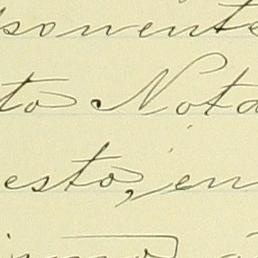 ponente
to Nota
esto, en